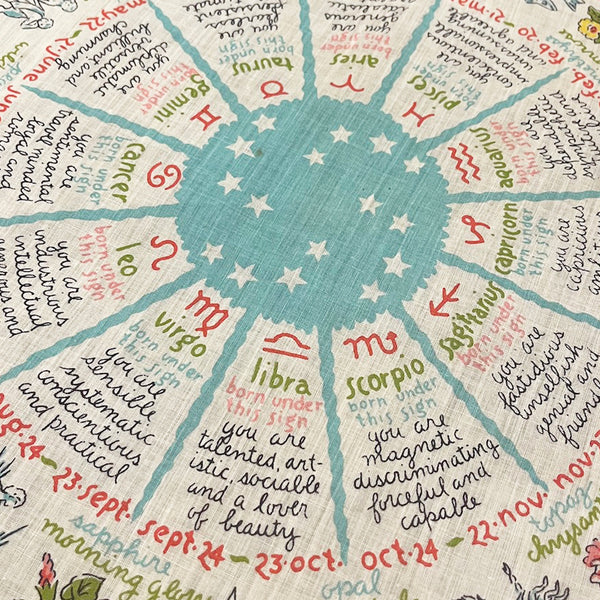 aries
born under
this sign
you are
generous
taurus
born under
this sign
you are
gemini
born under
this sign
you are
diplomatic
charming
may 22-21·June
cancer
born under
this sign
you are
sentimental
travel minded
loyal and
leo
born under
this sign
you are
industrious
intellectual
generous and
virgo
born under
this sign
you are
sensible
systematic
conscientious
and practical
aug.24~23.sept.
sapphire
morning glory
libra
born under
this sign
you are
talented, art-
istic, sociable
and a lover
of beauty
sept.24~23.oct.
opal
scorpio
born under
this sign
you are
magnetic
discriminating
forceful and
capable
oct.24~22.nov.
topaz
sagittarius
born under
this sign
you are
fastidious
unselfish
genial and
nov.23
capricorn
born under
this sign
you are
capricious
aquarius
born under
this sign
you are
pisces
born under
this sign
you are
feb 20-